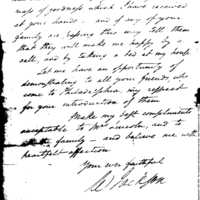 mass of goodness which I have received
at your hands - and if any of your
family are passing this way tell them
that they will make me happy by a
call, and by taking a bed at my house
Let me have an opportunity of
demonstrating to all your friends, who
come to Philadelphia, my respect
for your introduction of them
Make my best compliments
acceptable to Mrs Lincoln, and to
the family - and believe me with
affection
Your ever faithful
W Jackson